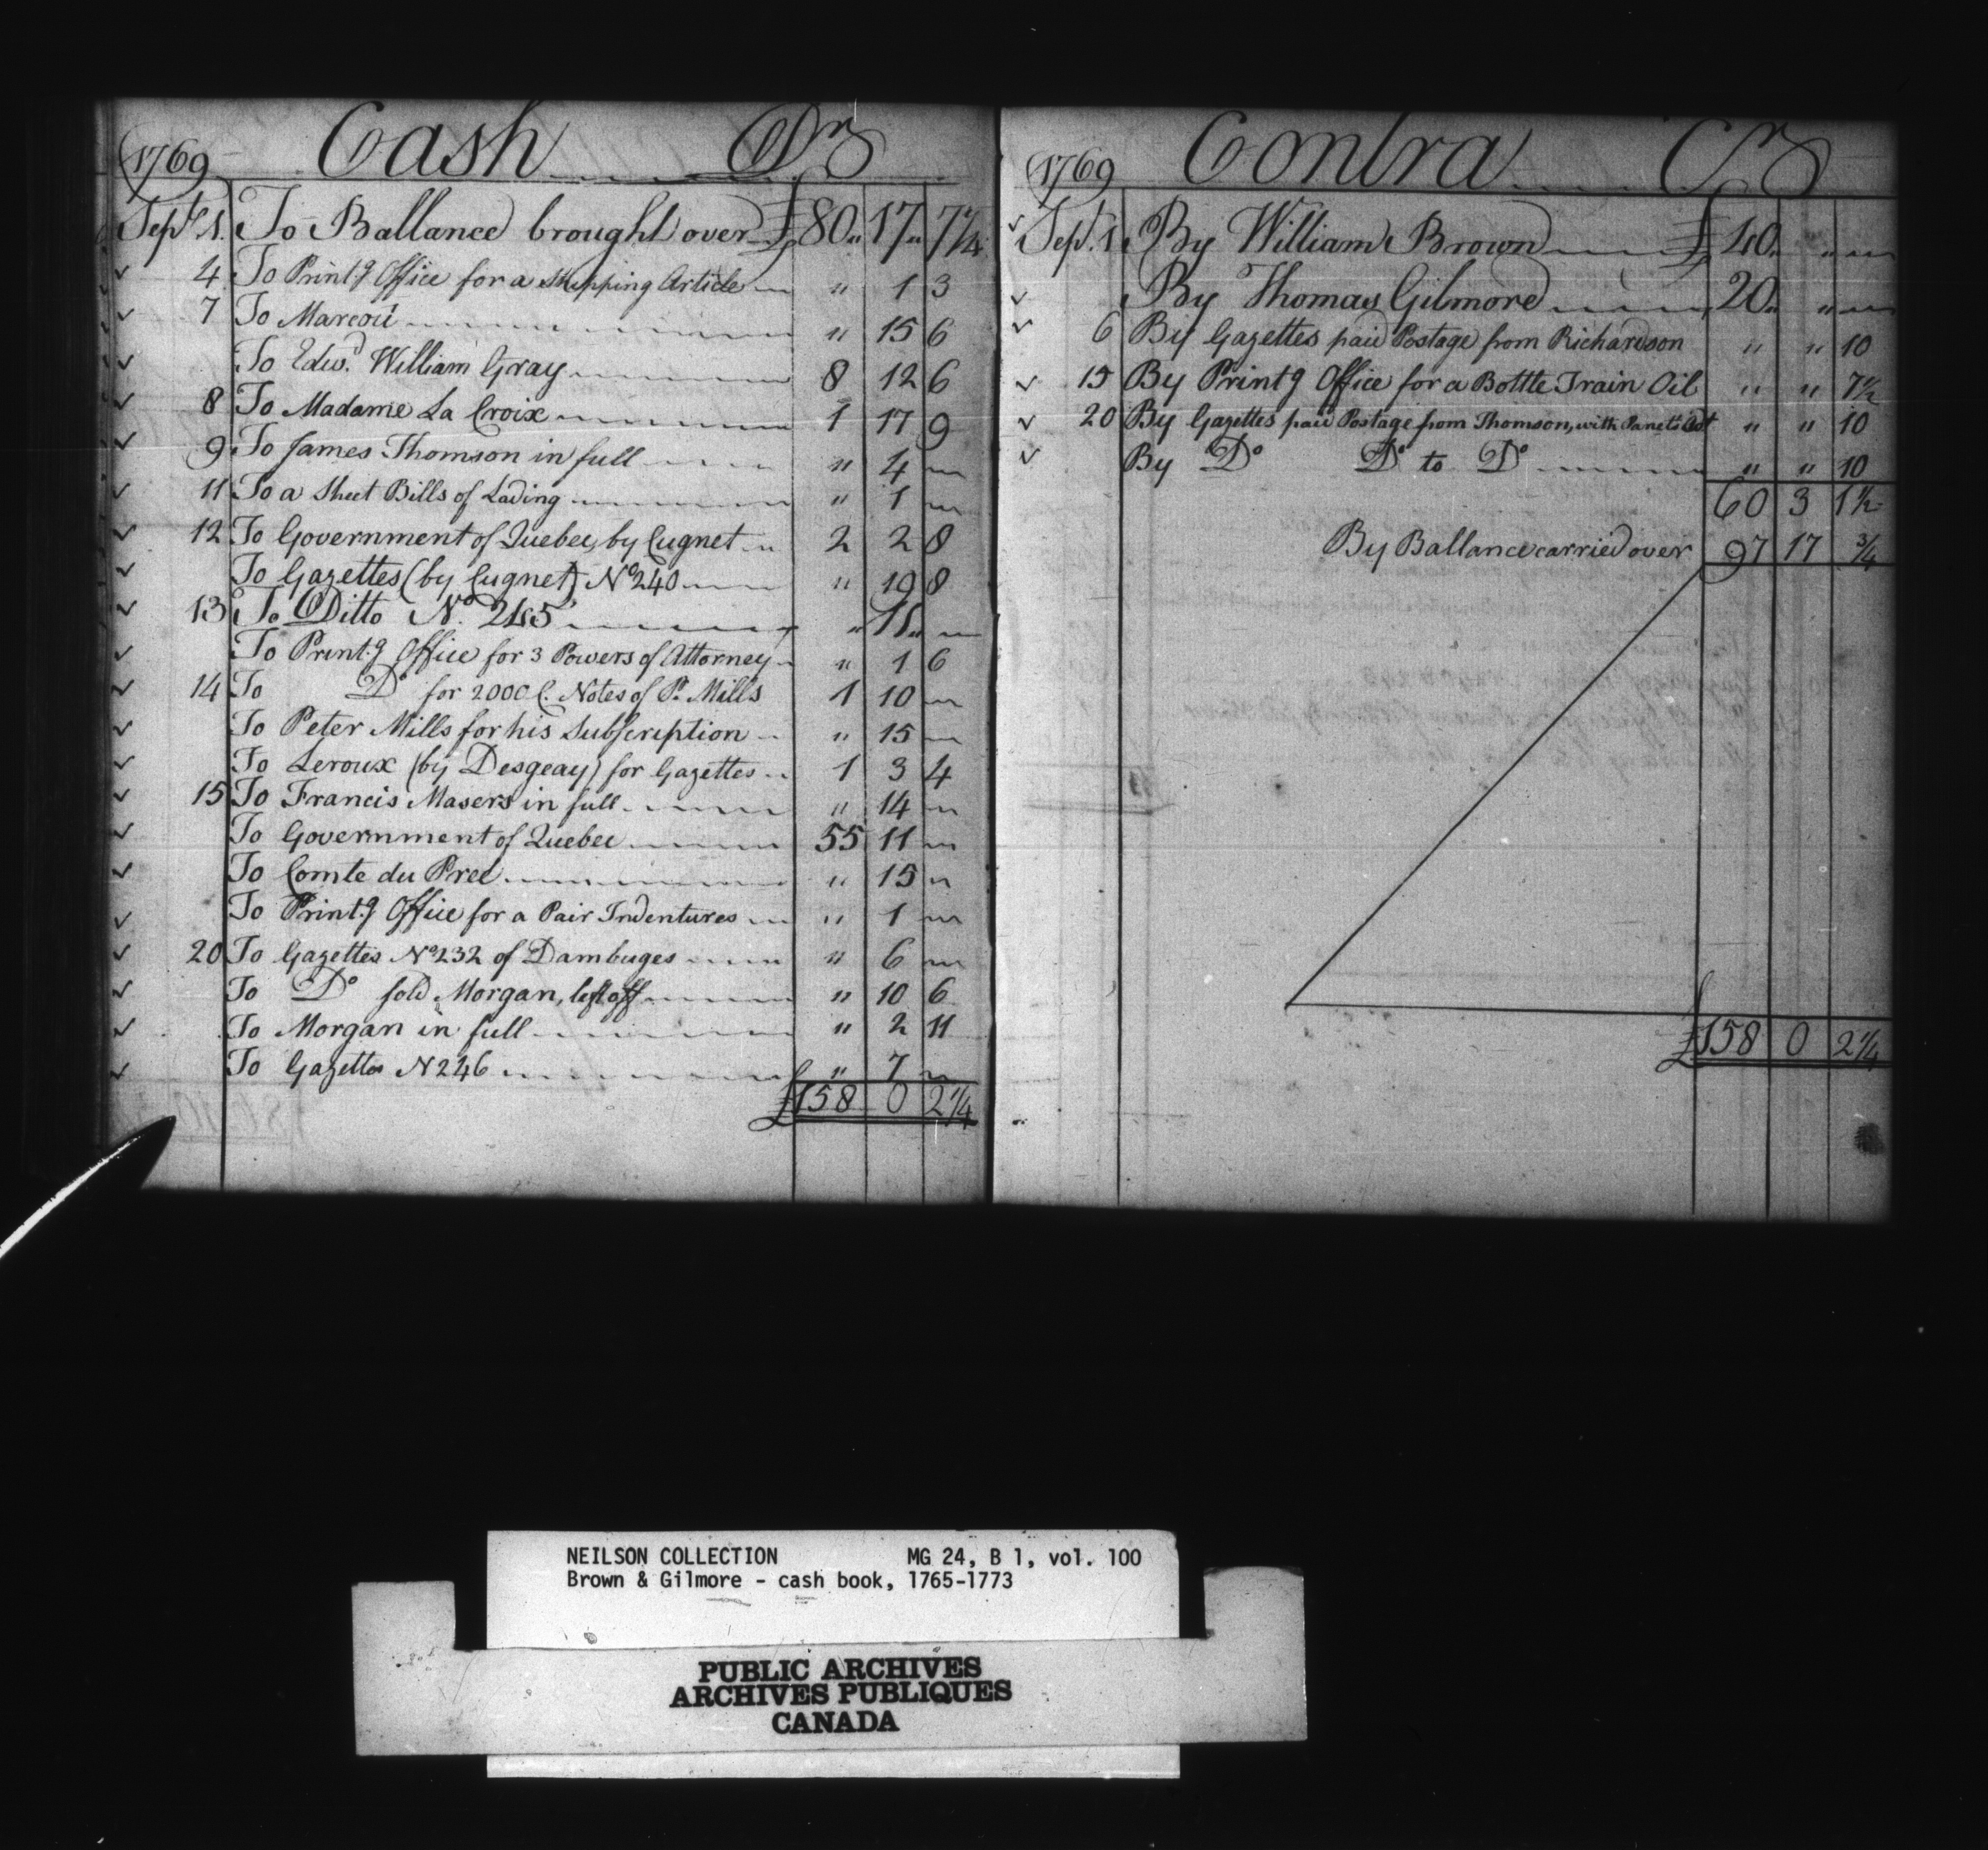 1769 Cash Dr
Sept. 1. To Ballance brought over £ 80 „ 17 „ 7 1/4
4 To Print.g Office for a Shipping Article „ 1 3
7 To Marcou „ 15 6
To Edwd. William Gray 8 12 6
8 To Madame La Croix 1 17 9
9 To James Thomson in full „ 4 „
11 To a Sheet Bills of Lading „ 1 „
12 To Government of Quebec, by Cugnet 2 2 8
To Gazettes (by Cugnet) No. 240 „ 19 8
13 To Ditto No. 245 „ 11 „
To Print.g Office for 3 Powers of Attorney „ 1 6
14 To Do for 2000 C. Notes of Pr. Mills 1 10 „
To Peter Mills for his Subscription „ 15 „
To Leroux (by Desgeay) for Gazettes 1 3 4
15 To Francis Masers in full „ 14 „
To Government of Quebec 55 11 „
To Comte du Pree „ 15 „
To Print.g Office for a Pair Indentures „ 1 „
20 To Gazettes No 232 of Dambuges „ 6 „
To Do sold Morgan, left off „ 10 6
To Morgan in full „ 2 11
To Gazettes N 246 „ 7 „
£158 0 2 1/4
1769 Contra Cr
Sept. 1. By William Brown £ 40 „ „ „
By Thomas Gilmore 20 „ „ „
6 By Gazettes paid Postage from Richardson „ „ 10
15 By Print.g Office for a Bottle Train Oil „ „ 7 1/2
20 By Gazettes paid Postage from Thomson, with Panet's Adt „ „ 10
By Do Do to Do „ „ 10
60 3 1 1/2
By Ballance carried over 97 17 3/4
£158 0 2 1/4
NEILSON COLLECTION MG 24, B 1, vol. 100
Brown & Gilmore - cash book, 1765-1773
PUBLIC ARCHIVES
ARCHIVES PUBLIQUES
CANADA